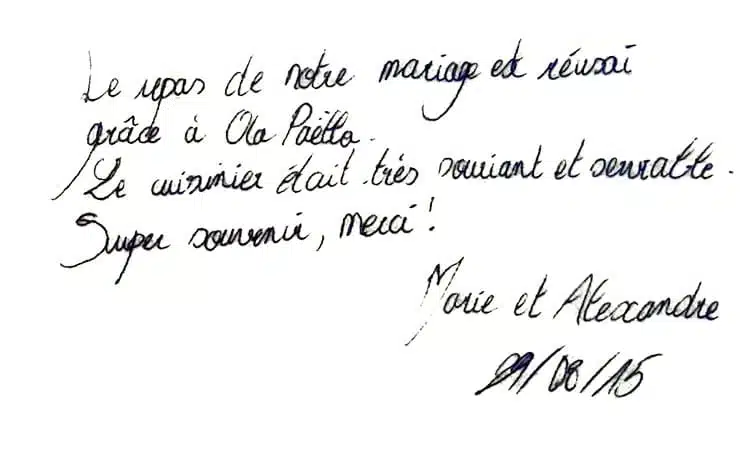 Le repas de notre mariage est réussi
grâce à Ola Paëlla.
Le cuisinier était très souriant et serviable.
Super souvenir, merci !
Marie et Alexandre
29/08/15